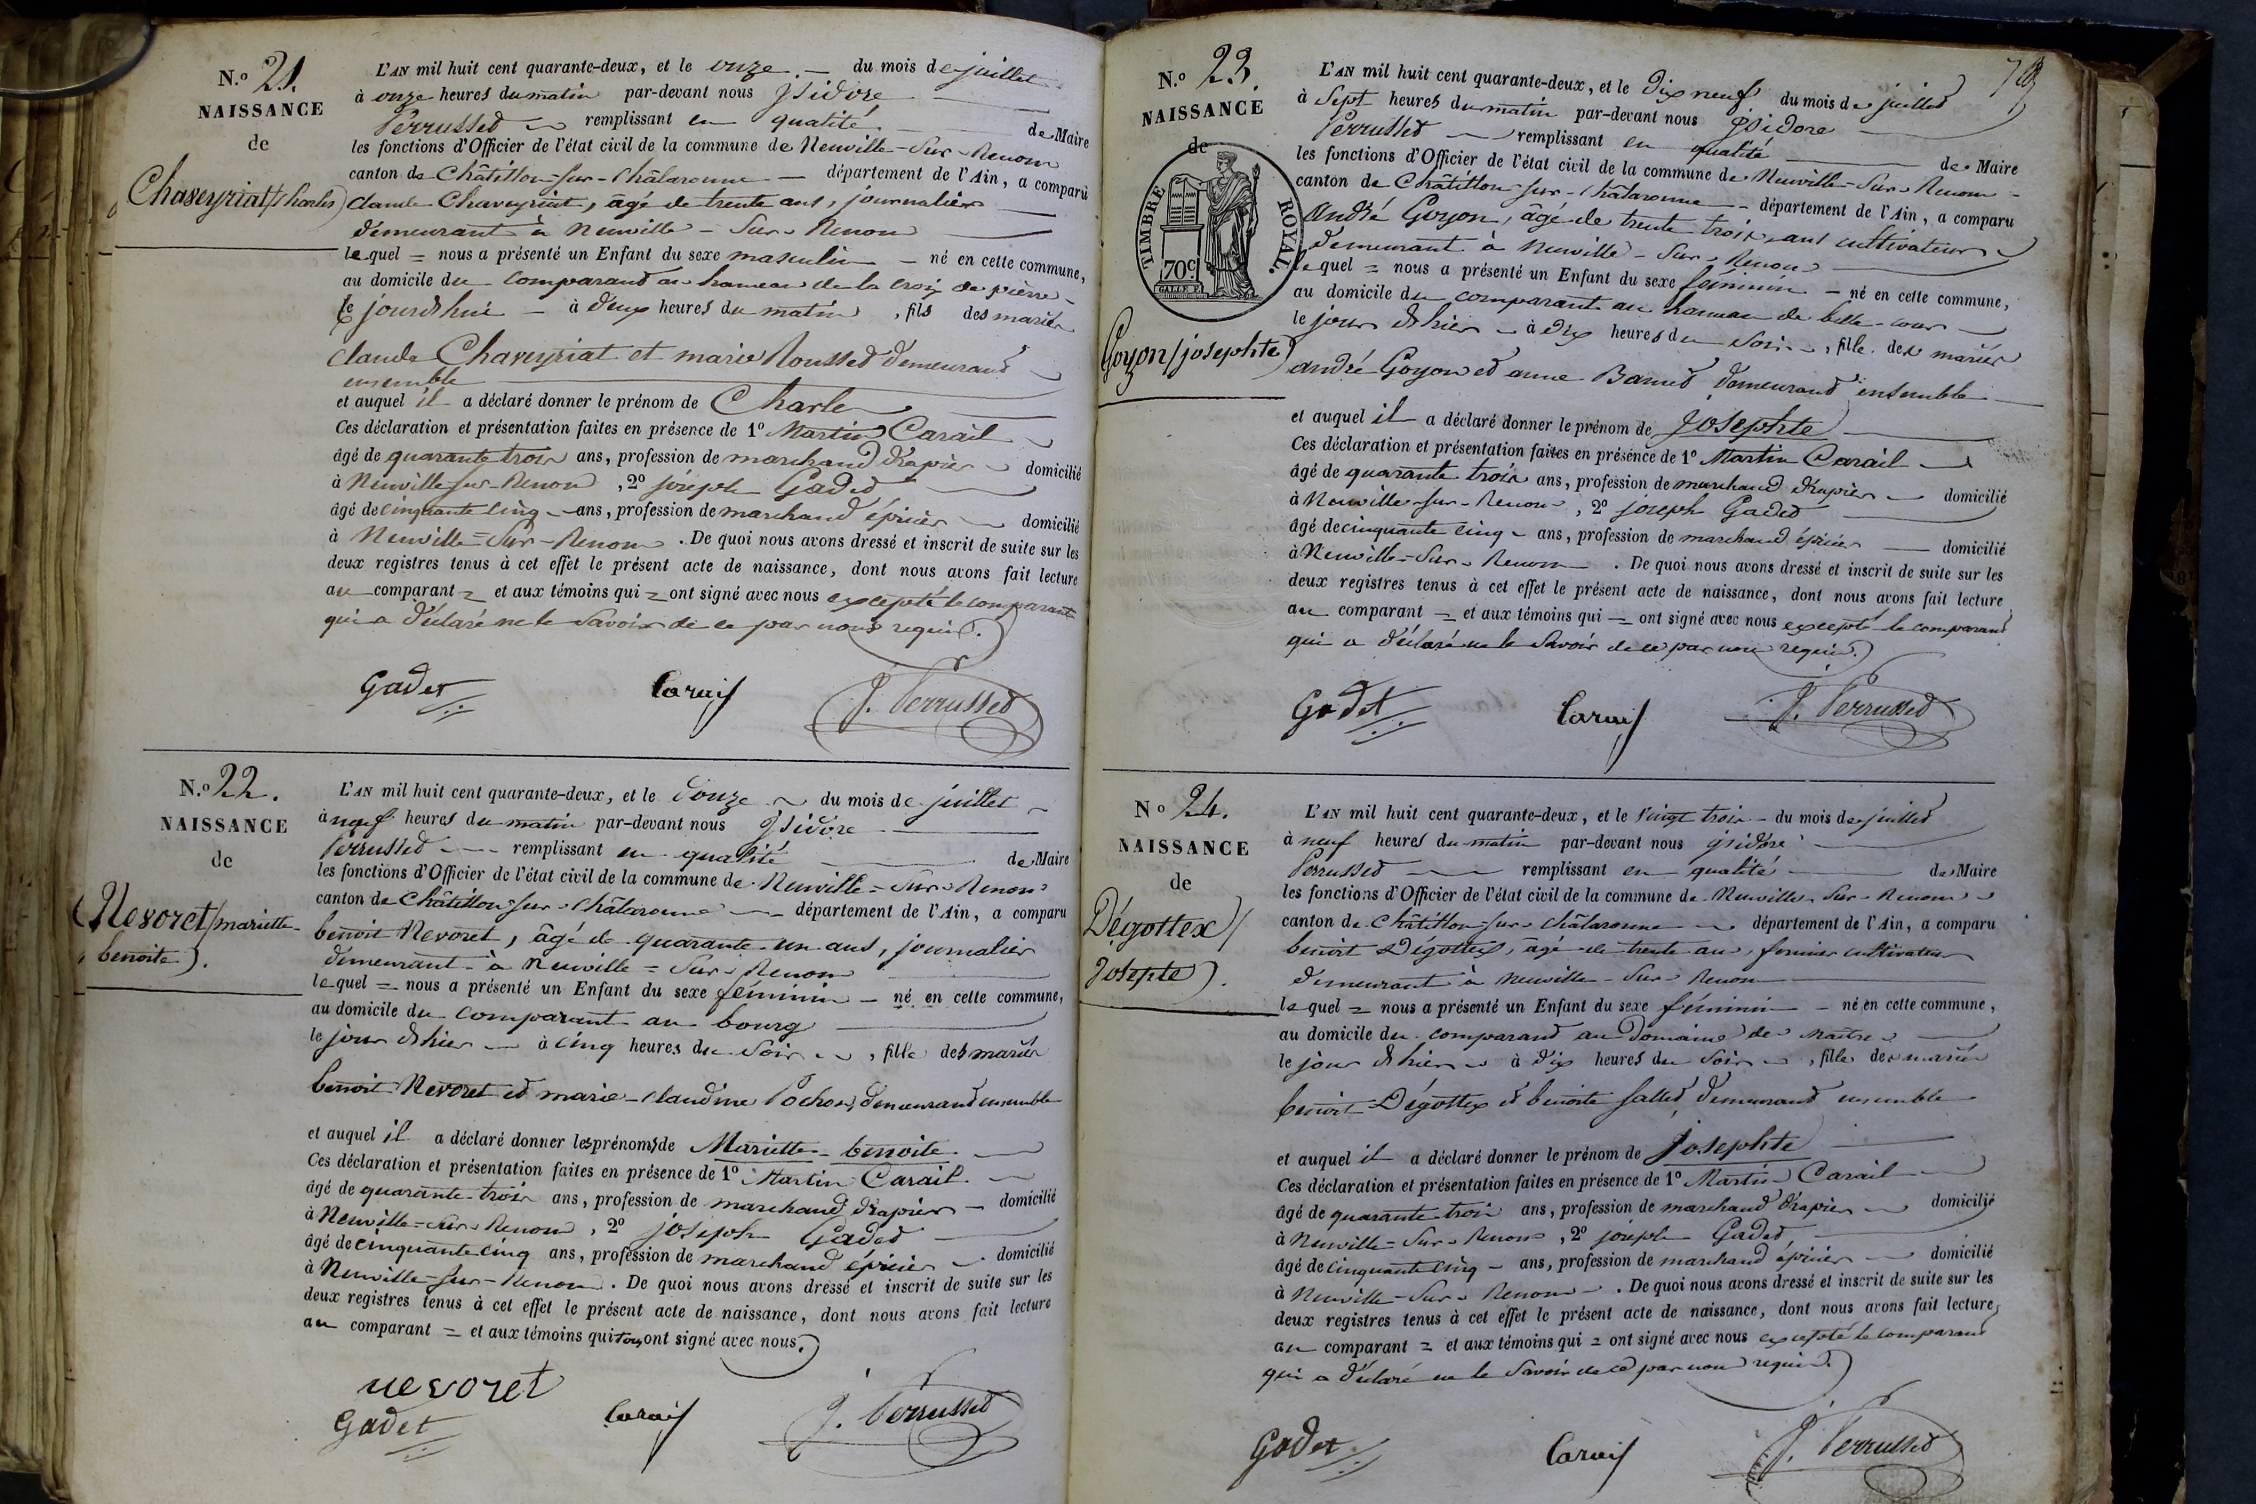 N.º 21.
NAISSANCE
de
Chaveyriat (Charles)
L'AN mil huit cent quarante-deux, et le onze du mois de juillet
à onze heures du matin par-devant nous Isidore
Perrusset remplissant en qualité de Maire
les fonctions d'Officier de l'état civil de la commune de Neuville-Sur-Renom
canton de Châtillon-sur-Châlaronne département de l'Ain, a comparu
Claude Chaveyriat, âgé de trente ans, journalier
demeurant à Neuville-Sur-Renom
lequel = nous a présenté un Enfant du sexe masculin né en cette commune,
au domicile du comparand au hameau de la croix de pierre
le jourdhui à deux heures du matin, fils des mariés
Claude Chaveyriat et marie Rousset demeurand
ensemble
et auquel il a déclaré donner le prénom de Charles
Ces déclaration et présentation faites en présence de 1º Martin Carail
âgé de quarante trois ans, profession de marchand drapier domicilié
à Neuville-sur-Renom, 2º joseph Gadet
âgé de cinquante cinq ans, profession de marchand épicier domicilié
à Neuville-Sur-Renom. De quoi nous avons dressé et inscrit de suite sur les
deux registres tenus à cet effet le présent acte de naissance, dont nous avons fait lecture
au comparant = et aux témoins qui = ont signé avec nous excepté le comparant
qui a déclaré ne le Savoir de ce par nous requis.
Gadet Carail J. Perrusset
N.º 22.
NAISSANCE
de
(Nevoret (mariette-
benoite).
L'AN mil huit cent quarante-deux, et le douze du mois de juillet
à neuf heures du matin par-devant nous Isidore
Perrusset remplissant en qualité de Maire
les fonctions d'Officier de l'état civil de la commune de Neuville-Sur-Renom
canton de Châtillon-sur-Châlaronne département de l'Ain, a comparu
benoit Nevoret, âgé de quarante-un ans, journalier
demeurant à Neuville-Sur-Renom
lequel = nous a présenté un Enfant du sexe féminin né en cette commune,
au domicile du comparant au bourg
le jour d'hier à cinq heures du Soir, fille des mariés
benoit Nevoret et marie-claudine Pochon, demeurand ensemble
et auquel il a déclaré donner les prénoms de Mariette-benoite
Ces déclaration et présentation faites en présence de 1º Martin Carail
âgé de quarante-trois ans, profession de marchand drapier domicilié
à Neuville-Sur-Renom, 2º joseph Gadet
âgé de cinquante cinq ans, profession de marchand épicier domicilié
à Neuville-Sur-Renom. De quoi nous avons dressé et inscrit de suite sur les
deux registres tenus à cet effet le présent acte de naissance, dont nous avons fait lecture
au comparant = et aux témoins qui tous ont signé avec nous.
nevoret
Gadet Carail J. Perrusset
N.º 23.
NAISSANCE
de
TIMBRE ROYAL.
70c
Goyon (josephte)
L'AN mil huit cent quarante-deux, et le Dix neuf du mois de juillet
à Sept heures du matin par-devant nous Isidore
Perrusset remplissant en qualité de Maire
les fonctions d'Officier de l'état civil de la commune de Neuville-Sur-Renom
canton de Châtillon-sur-Châlaronne département de l'Ain, a comparu
André Goyon, âgé de trente trois ans cultivateur
demeurant à Neuville-Sur-Renom
lequel = nous a présenté un Enfant du sexe féminin né en cette commune,
au domicile du comparant au hameau de belle-cour
le jour d'hier à dix heures du Soir, fille des mariés
andré Goyon et anne Bamet demeurand ensemble
et auquel il a déclaré donner le prénom de Josephte
Ces déclaration et présentation faites en présence de 1º Martin Carail
âgé de quarante trois ans, profession de marchand drapier domicilié
à Neuville-sur-Renom, 2º joseph Gadet
âgé de cinquante cinq ans, profession de marchand épicier domicilié
à Neuville-Sur-Renom. De quoi nous avons dressé et inscrit de suite sur les
deux registres tenus à cet effet le présent acte de naissance, dont nous avons fait lecture
au comparant = et aux témoins qui = ont signé avec nous excepté le comparand
qui a déclaré ne le Savoir de ce par nous requis.
Gadet Carail J. Perrusset
Nº 24.
NAISSANCE
de
Dégottex (
Josepte).
L'AN mil huit cent quarante-deux, et le Vingt trois du mois de juillet
à neuf heures du matin par-devant nous isidore
Perrusset remplissant en qualité de Maire
les fonctions d'Officier de l'état civil de la commune de Neuville-Sur-Renom
canton de Châtillon-sur-Châlaronne département de l'Ain, a comparu
benoit Dégottex, âgé de trente ans, fermier cultivateur
demeurant à Neuville-Sur-Renom
lequel = nous a présenté un Enfant du sexe féminin né en cette commune,
au domicile du comparand au Domaine de
le jour d'hier à dix heures du Soir, fille des mariés
benoit Dégottex et benoite Sallet, demeurand ensemble
et auquel il a déclaré donner le prénom de Josephte
Ces déclaration et présentation faites en présence de 1º Martin Carail
âgé de quarante-trois ans, profession de marchand drapier domicilié
à Neuville-Sur-Renom, 2º joseph Gadet
âgé de cinquante cinq ans, profession de marchand épicier domicilié
à Neuville-Sur-Renom. De quoi nous avons dressé et inscrit de suite sur les
deux registres tenus à cet effet le présent acte de naissance, dont nous avons fait lecture
au comparant = et aux témoins qui = ont signé avec nous excepté le comparand
qui a déclaré ne le Savoir de ce par nous requis.
Gadet Carail J. Perrusset